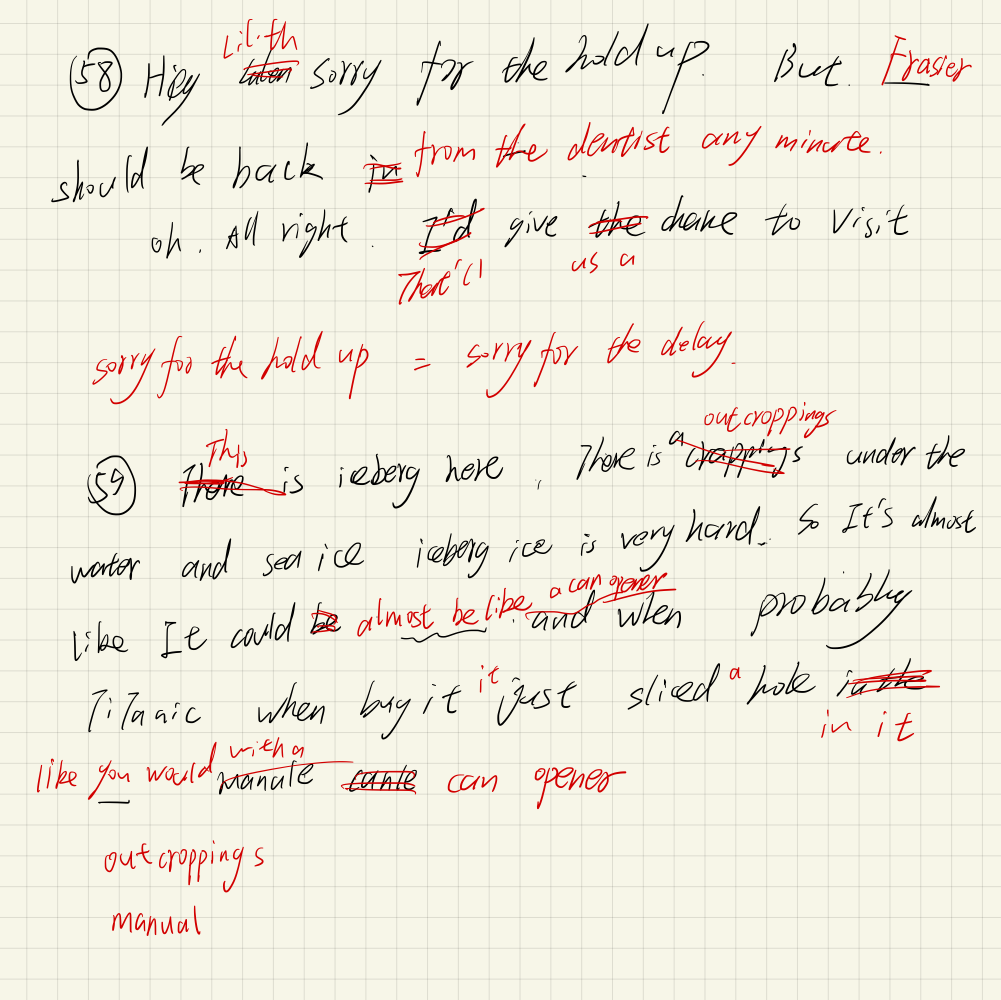 58 Hey Lilith sorry for the hold up. But. Frasier
should be back in from the dentist any minute.
oh. All right. I'd give the chance to visit
That'll us a
sorry for the hold up = sorry for the delay.
outcroppings
59 This There is iceberg here. There is a croppings under the
water and sea ice iceberg ice is very hard. So It's almost
like It could be almost be like a can opener. and when probabbly
TiTanic when bug it it just sliced a hole in the
in it
like you would with a manule canle can opener
outcroppings
manual